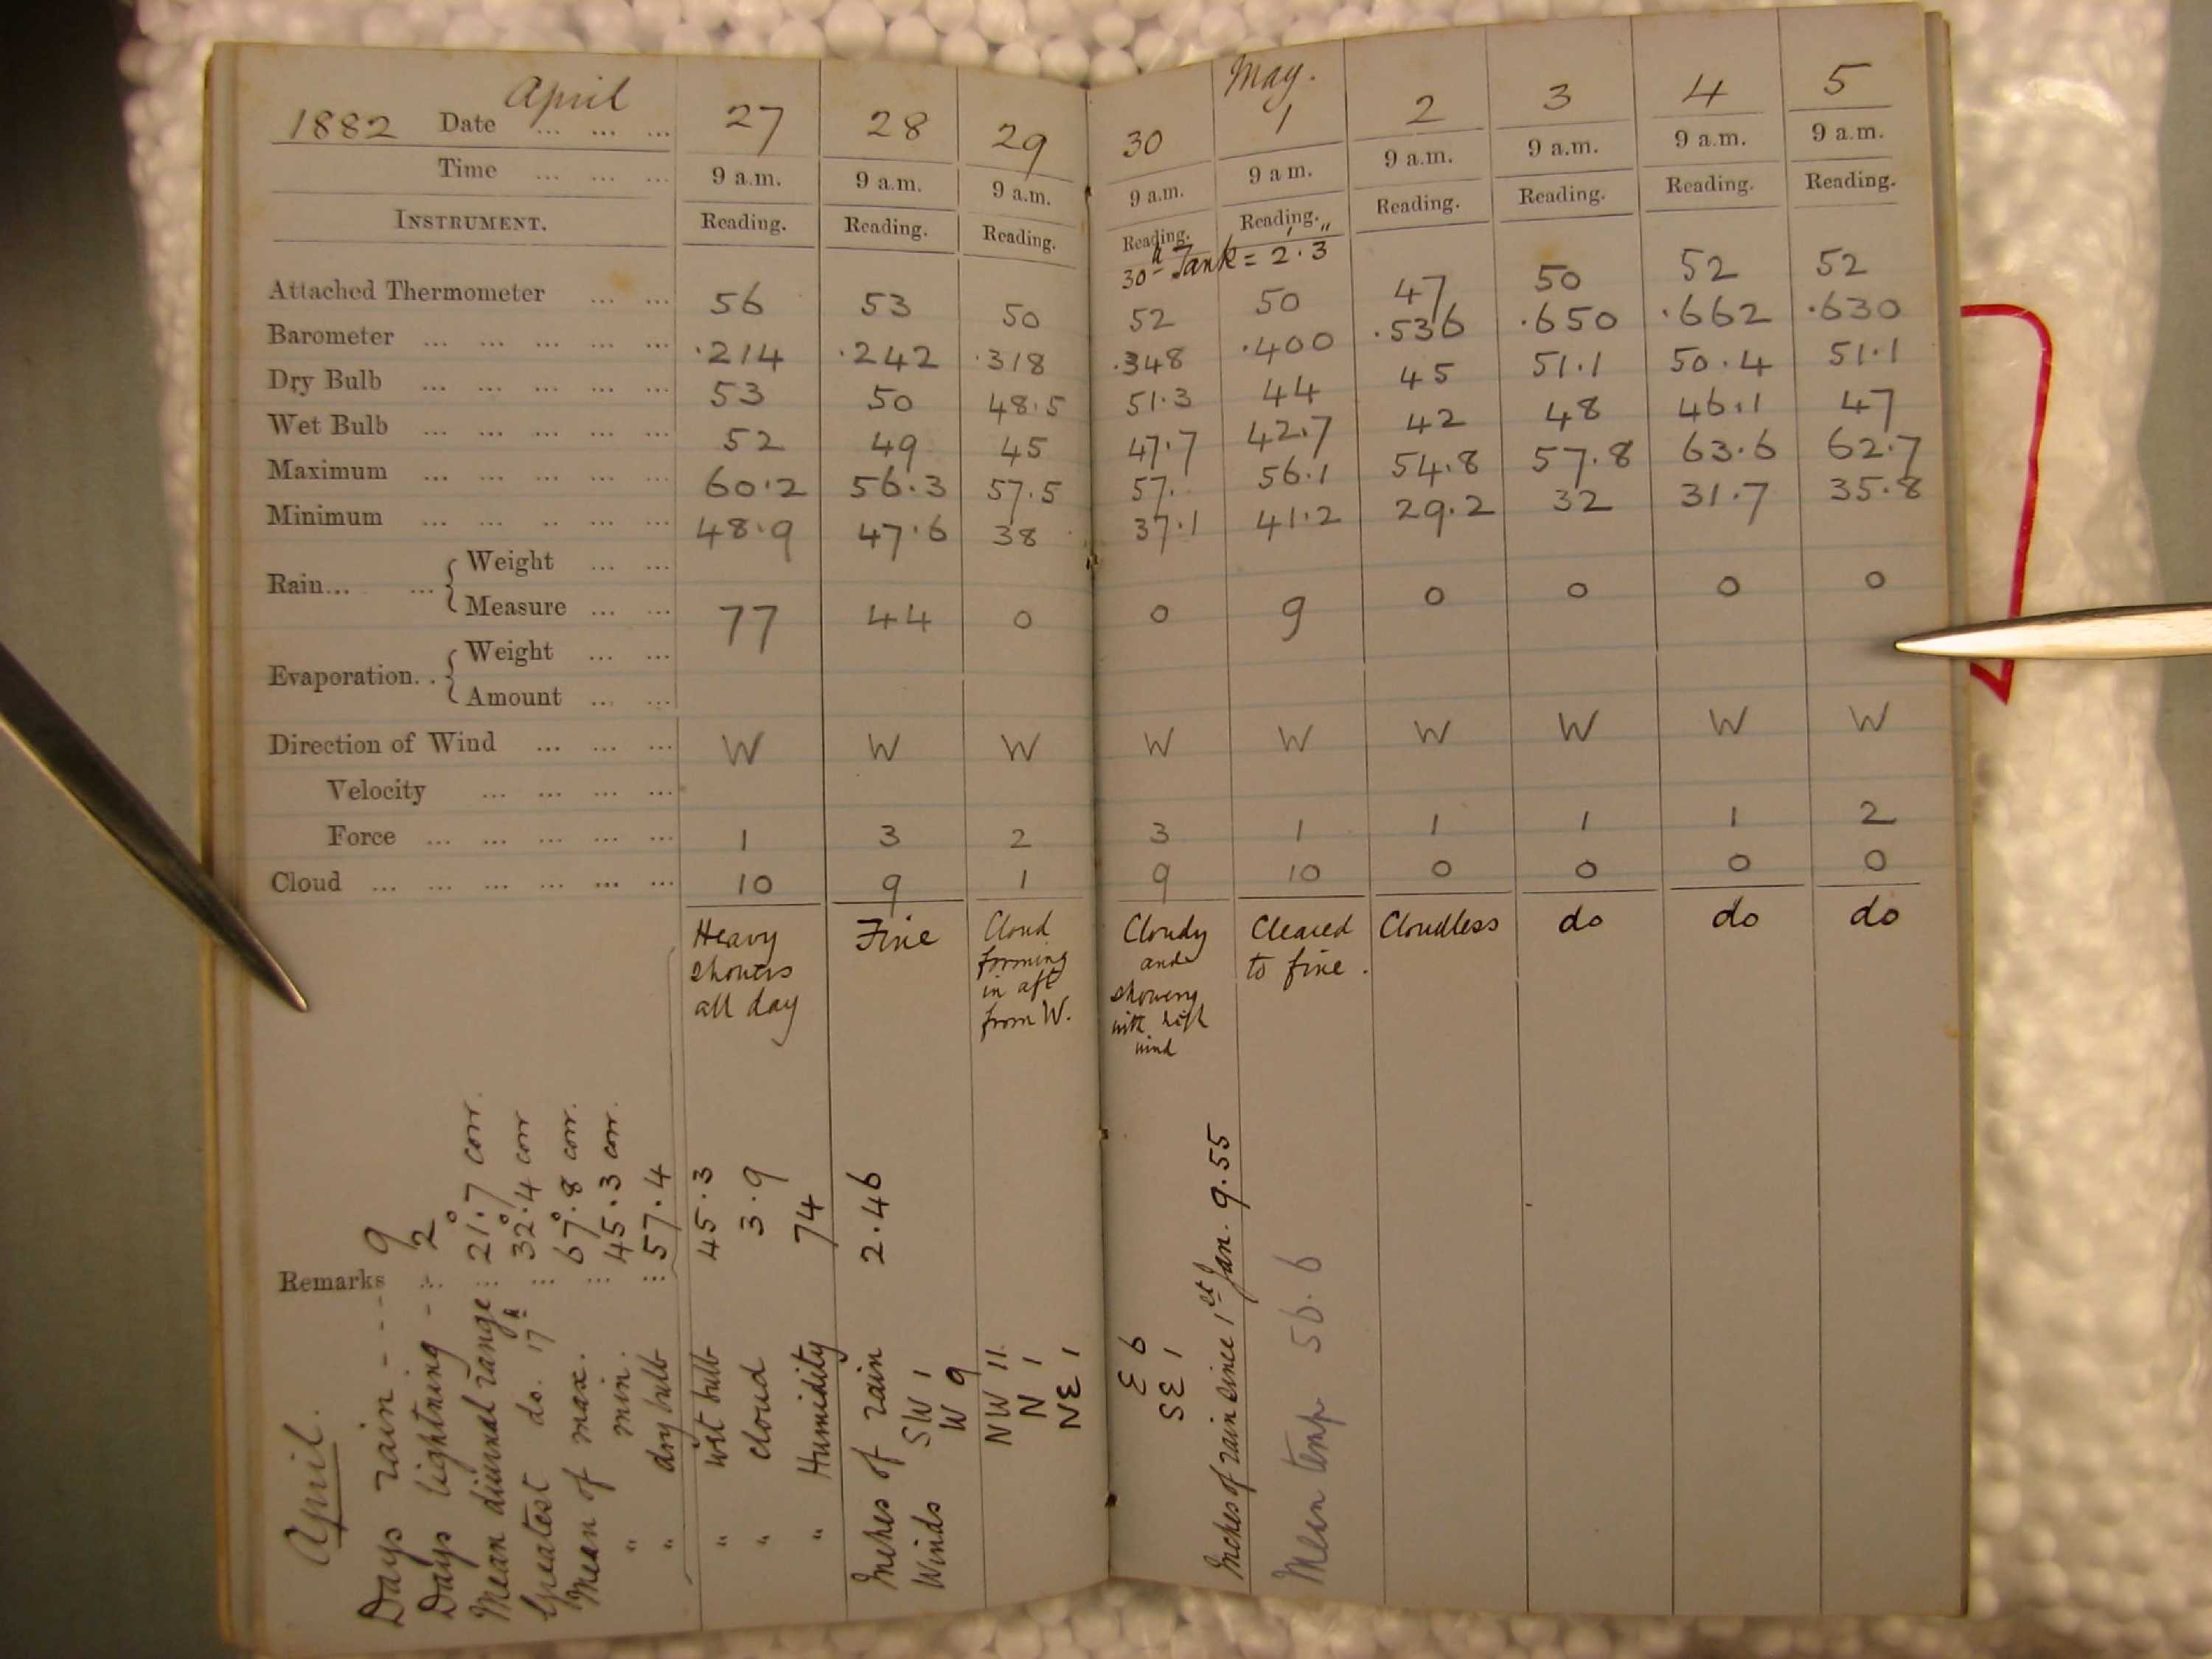 1882 Date April ... ... ... 27 28 29 30 May. 1 2 3 4 5
Time ... ... ... 9 a.m. 9 a.m. 9 a.m. 9 a.m. 9 a m. 9 a.m. 9 a.m. 9 a.m. 9 a.m.
INSTRUMENT. Reading. Reading. Reading. Reading. Reading. Reading. Reading. Reading. Reading.
30th Tank = 2'.3"
Attached Thermometer ... ... 56 53 50 52 50 47 50 52 52
Barometer ... ... ... ... ... ... .214 .242 .318 .348 .400 .536 .650 .662 .630
Dry Bulb ... ... ... ... ... ... 53 50 48.5 51.3 44 45 51.1 50.4 51.1
Wet Bulb ... ... ... ... ... ... 52 49 45 47.7 42.7 42 48 46.1 47
Maximum ... ... ... ... ... ... 60.2 56.3 57.5 57. 56.1 54.8 57.8 63.6 62.7
Minimum ... ... .. ... ... ... 48.9 47.6 38 37.1 41.2 29.2 32 31.7 35.8
Rain... ... { Weight ... ...
Measure ... ... 77 44 0 0 9 0 0 0 0
Evaporation. . { Weight ... ...
Amount ... ...
Direction of Wind ... ... ... W W W W W W W W W
Velocity ... ... ... ...
Force ... ... ... ... ... ... 1 3 2 3 1 1 1 1 2
Cloud ... ... ... ... ... ... ... 10 9 1 9 10 0 0 0 0
Heavy
showers
all day
Fine
Cloud
forming
in aft
from W.
Cloudy
and
showery
with high
wind
Cleared
to fine.
Cloudless
do
do
do
Remarks ... ... ... ... ...
April.
Days rain - - - 9
Days lightning - 2
Mean diurnal range 21°.7 corr.
Greatest do. 17th 32°.4 corr
Mean of max. 67°.8 corr.
" min. 45.3 corr.
" dry bulb 57.4
" wet bulb 45.3
" cloud 3.9
" Humidity 74
Inches of rain 2.46
Winds SW 1
W 9
NW 11
N 1
NE 1
E 6
SE 1
Inches of rain since 1st Jan. 9.55
Mean temp 56.6